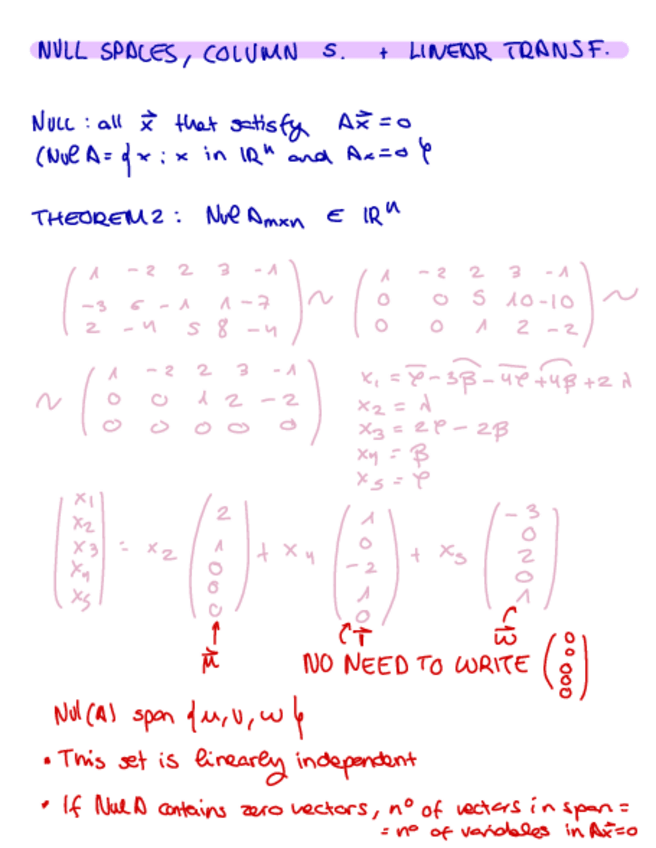 NULL SPACES, COLUMN S. + LINEAR TRANSF.
NULL : all x⃗ that satisfy Ax⃗ = 0
(Nul A = { x : x in ℝⁿ and Ax = 0 }
THEOREM 2 : Nul Aₘₓₙ ∈ ℝⁿ
( 1 -2 2 3 -1 ) ( 1 -2 2 3 -1 )
( -3 6 -1 1 -7 ) ~ ( 0 0 5 10 -10 ) ~
( 2 -4 5 8 -4 ) ( 0 0 1 2 -2 )
( 1 -2 2 3 -1 ) x₁ = φ - 3β - 4φ + 4β + 2λ
~ ( 0 0 1 2 -2 ) x₂ = λ
( 0 0 0 0 0 ) x₃ = 2φ - 2β
x₄ = β
x₅ = φ
( x₁ ) ( 2 ) ( 1 ) ( -3 )
( x₂ ) ( 1 ) ( 0 ) ( 0 )
( x₃ ) = x₂ ( 0 ) + x₄ ( -2 ) + x₅ ( 2 )
( x₄ ) ( 0 ) ( 1 ) ( 0 )
( x₅ ) ( 0 ) ( 0 ) ( 1 )
↑ w⃗
NO NEED TO WRITE ( 0 0 0 0 0 )
Nul(A) span { u, v, w }
• This set is linearly independent
• If Nul A contains zero vectors, nº of vectors in span =
= nº of variables in Ax⃗=0